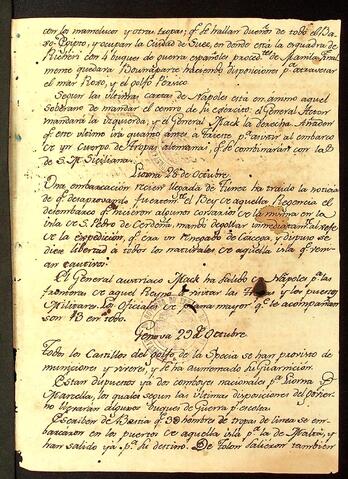 con los mamelucos y otras tropas; qe. se hallan dueños de todo el Ba-
xo Egipto, y ocupan la Ciudad de Suez, en donde está la esquadra de
Richeri con 4 buques de guerra españoles procedtes. de Manila. Final-
mente quedara Bounaparte haciendo disposiciones pa. atravesar
el mar Roxo, y el golfo Persico.
Segun las ultimas cartas de Napoles está en animo aquel
soberano de mandar el centro de su exercito; el General Acton
mandará la izquierda; y el General Mack la derecha. Añaden
qe. este ultimo irá quanto antes á Trieste pa. asistir al embarco
de un Cuerpo de tropas alemanas, qe. se combinarán con las
de S. M. Siciliana.
Liorna 26 de Octubre.
Una embarcacion recien llegada de Tunez ha traido la noticia
de qe. desaprovando fuertemte. el Bey de aquella Regencia el
desembarco qe. hicieron algunos corsarios de la misma en la
isla de S. Pedro de Cerdeña, mandó degollar inmediatamte. al xefe
de la expedicion, qe. era un renegado de Corcega, y dispuso se
diese libertad á todos los naturales de aquella isla qe. veni-
an cautivos.
El General austriaco Mack ha salido de Napoles pa. las
fronteras de aquel Reyno á visitar las y los puertos
Militares. Los oficiales de plana mayor qe. le acompañan
son 13 en todo.
Genova 29 de Octubre.
Todos los Castillos del golfo de la Specia se han provisto de
municiones y viveres, y se ha aumentado su Guarnicion.
Estan dispuestos ya dos comboyes nacionales pa. Liorna y
Marsella, los quales segun las ultimas disposiciones del Gobier-
no llevarán algunos buques de Guerra pa. escolta.
Escriben de Bastia qe. 30 hombres de tropa de linea se em-
barcaron en los puertos de aquella isla pa. la de Malta, y
han salido ya pa. su destino. De Tolon salieron tambien